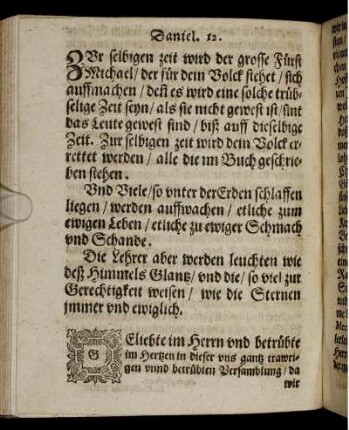 Daniel. 12.
ZVr selbigen zeit wird der grosse Fürst
Michael / der für dein Volck stehet / sich
auffmachen / deñ es wird eine solche trüb-
selige Zeit seyn / als sie nicht gewest ist / sint
das Leute gewest sind / biß auff dieselbige
Zeit. Zur selbigen zeit wird dein Volck er-
rettet werden / alle die im Buch geschrie-
ben stehen.
Vnd Viele / so vnter der Erden schlaffen
liegen / werden auffwachen / etliche zum
ewigen Leben / etliche zu ewiger Schmach
vnd Schande.
Die Lehrer aber werden leuchten wie
deß Himmels Glantz / vnd die / so viel zur
Gerechtigkeit weisen / wie die Sternen
jmmer vnd ewiglich.
GEliebte im Herrn vnd betrübte
im Hertzen in dieser vns gantz trawri-
gen vnnd betrübten Versamblung / da
wir